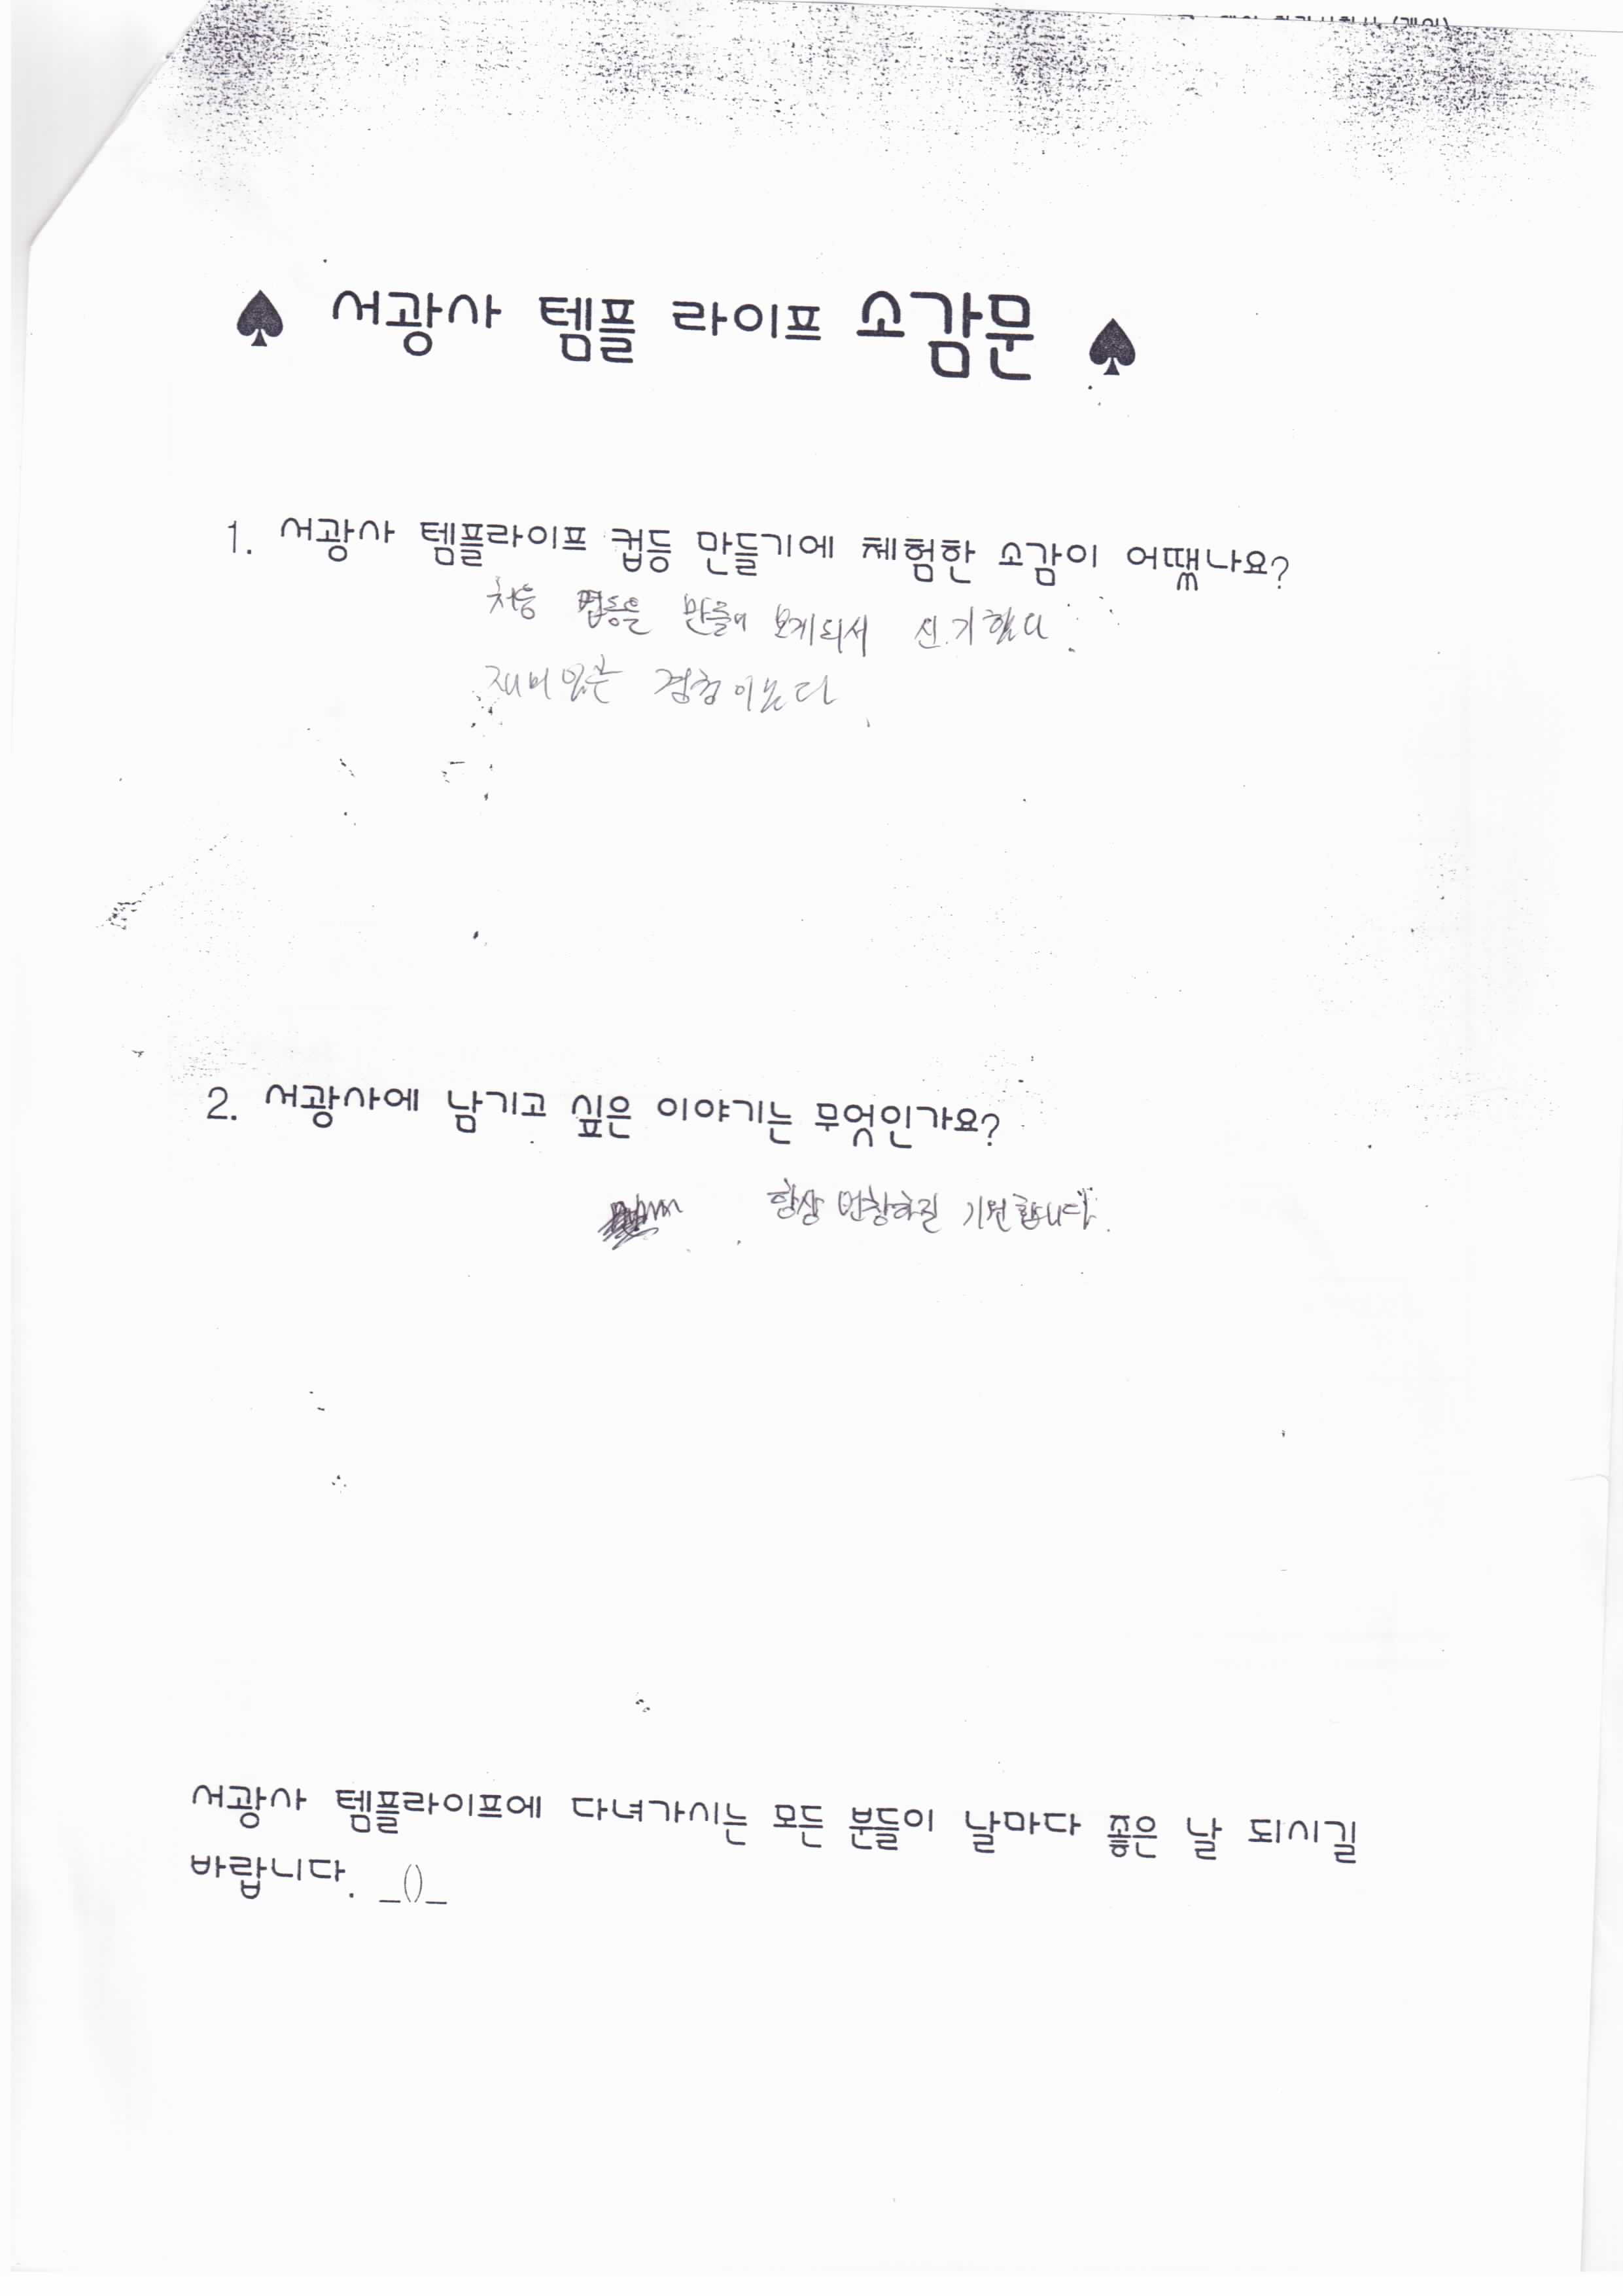 ♠ 서광사 템플 라이프 소감문 ♠
1. 서광사 템플라이프 컵등 만들기에 체험한 소감이 어땠나요?
처음 컵등을 만들어 보게되서 신기했다.
재미있는 경험이었다
2. 서광사에 남기고 싶은 이야기는 무엇인가요?
항상 번창하길 기원합니다.
서광사 템플라이프에 다녀가시는 모든 분들이 날마다 좋은 날 되시길
바랍니다. _()_